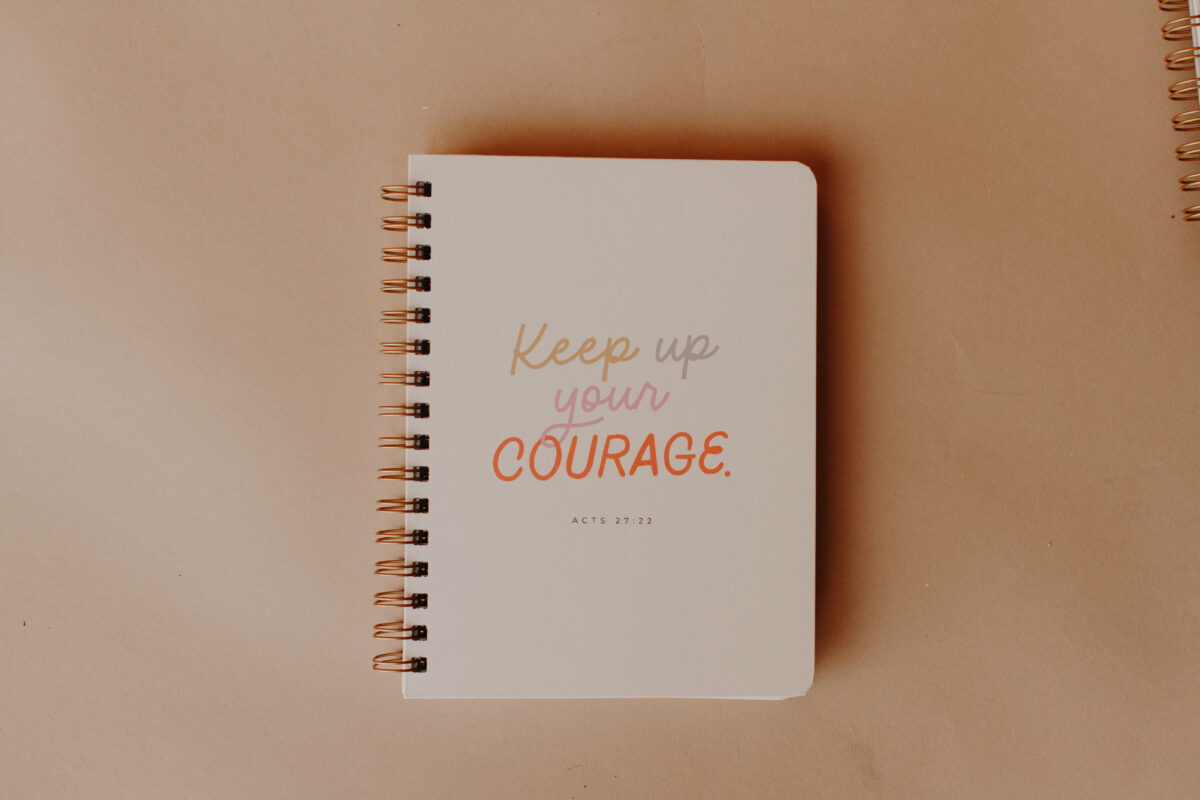 Keep up
your
COURAGE.
ACTS 27:22